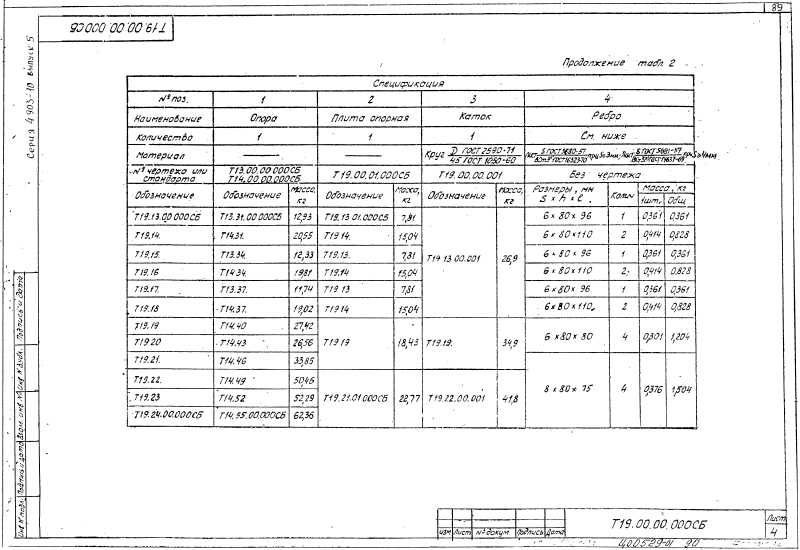 89
Т19.00.00.000СБ
Серия 4.903-10 выпуск 5
Продолжение табл. 2
Спецификация
№ поз. 1 2 3 4
Наименование Опора Плита опорная Каток Ребро
Количество 1 1 1 См. ниже
Материал — — Круг D ГОСТ 2590-71 / 45 ГОСТ 1050-60
№ чертежа или стандарта Т13.00.00.000СБ Т14.00.00.000СБ Т19.00.01.000СБ Т19.00.00.001 Без чертежа
Обозначение Обозначение Масса, кг Обозначение Масса, кг Обозначение Масса, кг Размеры, мм S × h × l Колич Масса, кг 1шт. Общ.
Т19.13.00.000СБ Т13.31.00.000СБ 12,93 Т19.13.01.000СБ 7,81 Т19.13.00.001 26,9 6×80×96 1 0,361 0,361
Т19.14. Т14.31. 20,55 Т19.14. 15,04 6×80×110 2 0,414 0,828
Т19.15. Т13.34. 12,33 Т19.13. 7,81 6×80×96 1 0,361 0,361
Т19.16 Т14.34. 19,81 Т19.14 15,04 6×80×110 2 0,414 0,828
Т19.17. Т13.37. 11,74 Т19.13 7,81 6×80×96 1 0,361 0,361
Т19.18 Т14.37. 19,02 Т19.14 15,04 6×80×110 2 0,414 0,828
Т19.19 Т14.40 27,42
Т19.20 Т14.43 26,56 Т19.19 18,43 Т19.19. 34,9 6×80×80 4 0,301 1,204
Т19.21. Т14.46 33,85
Т19.22. Т14.49 50,46
Т19.23 Т14.52 52,29 Т19.21.01.000СБ 22,77 Т19.22.00.001 41,8 8×80×75 4 0,376 1,504
Т19.24.00.000СБ Т14.55.00.000СБ 62,36
Инв № подл. Подпись и дата Взам. инв № Инв № дубл. Подпись и дата
Изм Лист № докум Подпись Дата
Т19.00.00.000СБ
Лист
4
Ц00529-01 90